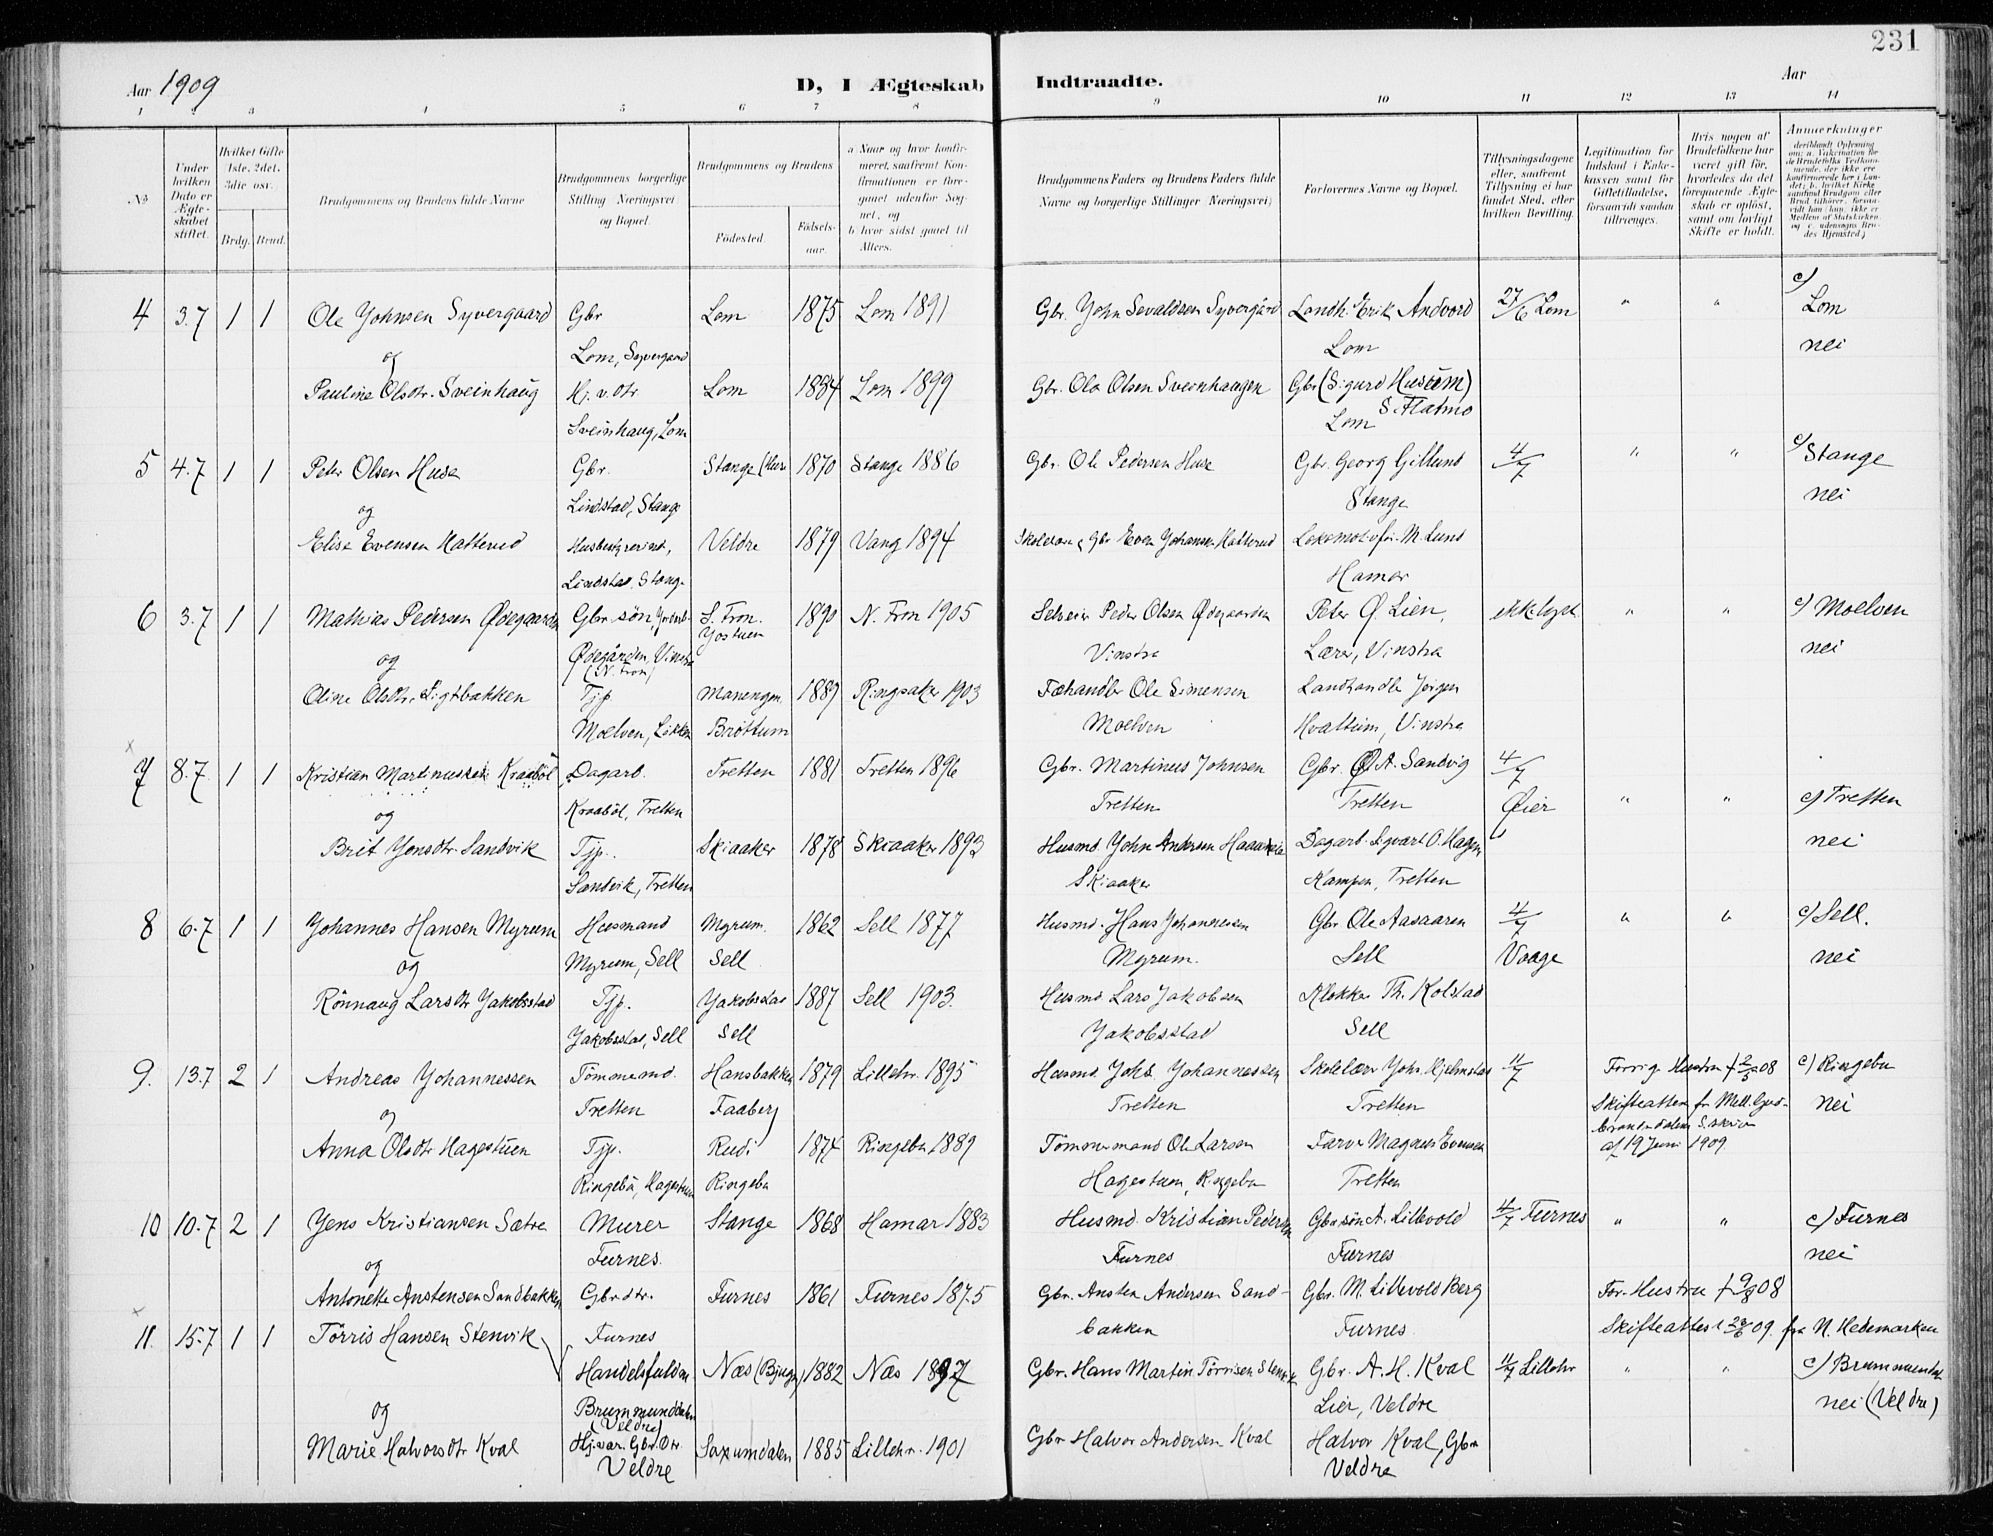 231
Aar 1909
D, I Ægteskab Indtraadte.
Aar
1 2 3 4 5 6 7 8 9 10 11 12 13 14
No
Under hvilken Dato er Ægteskabet stiftet.
Hvilket Gifte 1ste, 2det, 3die osv.
Brdg. Brud.
Brudgommens og Brudens fulde Navne
Brudgommens borgerlige Stilling Næringsvei og Bopæl.
Brudgommens og Brudens
Fødested. Fødselsaar.
a Naar og hvor konfirmeret, saafremt Konfirmationen er foregaaet udenfor Sognet, og
b hvor sidst gaaet til Alters.
Brudgommens Faders og Brudens Faders fulde Navne og borgerlige Stillinger Næringsvei)
Forlovernes Navne og Bopæl.
Tillysningsdagene eller, saafremt Tillysning ei har fundet Sted, efter hvilken Bevilling.
Legitimation for Indskud i Enkekassen samt for Giftetilladelse, forsaavidt saadan tiltrænges.
Hvis nogen af Brudefolkene har været gift før, hvorledes da det foregaaende Ægteskab er opløst, samt om lovligt Skifte er holdt.
Anmærkninger
deriblandt Oplysning om: a. Vakcination for de Brudefolks Vedkommende, der ikke ere konfirmerede her i Landet; b. hvilket Kirkesamfund Brudgom eller Brud tilhører, forsaavidt han/hun ikke er Medlem af Statskirken, og c. udensogns Brudes Hjemsted)
4 3.7 1 1 Ole Johnsen Syvergaard Gbr Lom 1875 Lom 1891 Gbr. John Sevaldsen Syvergård Landh. Erik Andvord 27/6 Lom " " c) Lom
og Lom, Syvergaard Lom nei
Pauline Olsdtr. Sveinhaug Hj. v. dtr Lom 1884 Lom 1899 Gbr. Ole Olsen Sveinhaugen Gbr (Sigurd Husum)
S. Flatmo
Sveinhaug, Lom Lom
5 4.7 1 1 Peter Olsen Huse Gbr. Stange (Huse 1870 Stange 1886 Gbr. Ole Pedersen Huse Gbr. Georg Gillund 4/7 " " c) Stange
og Lindstad, Stange Stange nei
Elise Evensen Hatterud Husbestyrerinde, Veldre 1879 Vang 1894 Gbr Even Johansen Hatterud Lokomotivfør. M. Lund
Lindstad, Stange Hamar
6 3.7 1 1 Mathias Pedersen Ødegaarden Gbr søn S. Fron. 1890 N. Fron 1905 Selveier Peder Olsen Ødegaarden Peter Ø. Lien, ikke lyst " " c) Moelven
Jostuen
og Ødegården, Vinstra (N. Fron) Vinstra Lærer, Vinstra nei
Oline Olsdtr. Tjp. Manengen 1889 Ringsaker 1903 Fæhandler Ole Simensen Landhandler Jørgen
Moelven, Løkken Brøttum Moelven Hvattum, Vinstra
x
7 8.7. 1 1 Kristian Martinusen Kraabøl Dagarb. Tretten 1881 Tretten 1896 Gbr. Martinus Johnsen Gbr. Ø. A. Sandvig 4/7
og Kraabøl, Tretten Tretten Tretten Øier " " c) Tretten
Brit Jensdtr. Sandvik Tjp. Skiaaker 1878 Skiaaker 1893 Husmd John Andersen Dagarb. Sigvart O. Hagen nei
Sandvik, Tretten Skiaaker Kampen, Tretten
8 6.7 1 1 Johannes Hansen Myrum Husmand Myrum. 1862 Sell 1877 Husmd. Hans Johannesen Gbr Ole Aasaaren 4/7 " " c) Sell.
og Myrum, Sell Sell Myrum. Sell Vaage nei
Rønnaug Larsdtr Jakobsstad Tjp. Jakobsstad 1887 Sell 1903. Husmd Lars Jakobsen Klokker Th. Kolstad
Jakobsstad, Sell Sell Jakobsstad Sell
9. 13.7 2 1 Andreas Johannessen Tømmermd. Hansbakken 1879 Lillehr. 1895 Husmd. Johs Johannessen Skolelærer Johs. Hjelmstad 11/7 Forrige Hustru † 2/5 08 c) Ringebu
og Tretten Faaberg Tretten Tretten Skifteattest fr. Mell. Gudbrandsdalens S. skriver nei
Anna Olsdtr Hagestuen Tjp. Rudi 1874 Ringebu 1889 Tømmermand Ole Larsen Farver Magnus Evensen af 19 Juni 1909.
Ringebu, Hagestuen Ringebu Hagestuen, Ringebu Tretten
10 10.7 2 1 Jens Kristiansen Sætre Murer Stange 1868 Hamar 1883 Husmd. Kristian Pedersen Gbr søn A. Lillevold 4/7 Furnes " " c) Furnes
og Furnes. Furnes Furnes nei
Antonette Anstensen Sandbakken Gbrdtr. Furnes 1861 Furnes 1875 Gbr. Ansten Andersen Sand- Gbr. M. Lillevold Berg For. Hustru † 9/8 08
x
11. 15.7 1 1 Tørris Hansen Stenvik Furnes bakken Furnes. Skifteattest 09. fra N. Hedemarken
Handelsfuldm. Næs 1882 Næs 1897 Gbr. Hans Martin Tørrisen Stenvik Gbr. A. H. Kval 11/7 Lillehr " " c) Brummundal
og Brummunddalen (Veldre) Lier, Veldre nei (Veldre)
Marie Halvorsdtr Kval Hj. vær. Gbr. dtr. Saxumdalen 1885 Lillehr. 1901 Gbr Halvor Andersen Kval Halvor Kval, Gbr
Veldre Veldre